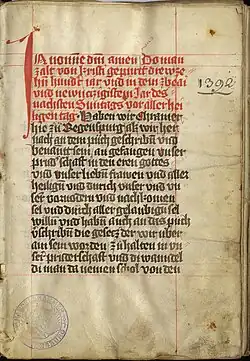 In nomine dm amen Do man
zalt von krists gepurt dreuze
hen hundt iar vnd in dem zwai
vnd newnczigisten Jar des
nachsten Suntags vor aller hei
ligen tag. Haben wir Chramer
hie zu Regenspurg als wir her
nach an dem puch geschriben vnd
benant sein, an gefangen unser
prud schaft in den eren gottes
vnd unser lieben frawen vnd aller
heiligen vnd durich unser vnd un
ser vorvodern vnd nachkomen
sel vnd durch aller gelaubigen sel
willen vnd haben auch an das puch
geschriben die gesecz der wir uber
ain sein worden zu halten in un
ser pruderschaft vnd di wandel
di man da nemen schol von den
1392